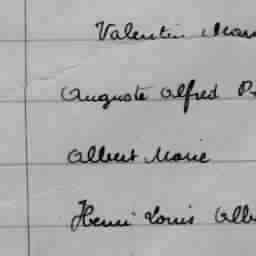 Valentin
Auguste Alfred
Albert Marie
Henri Louis